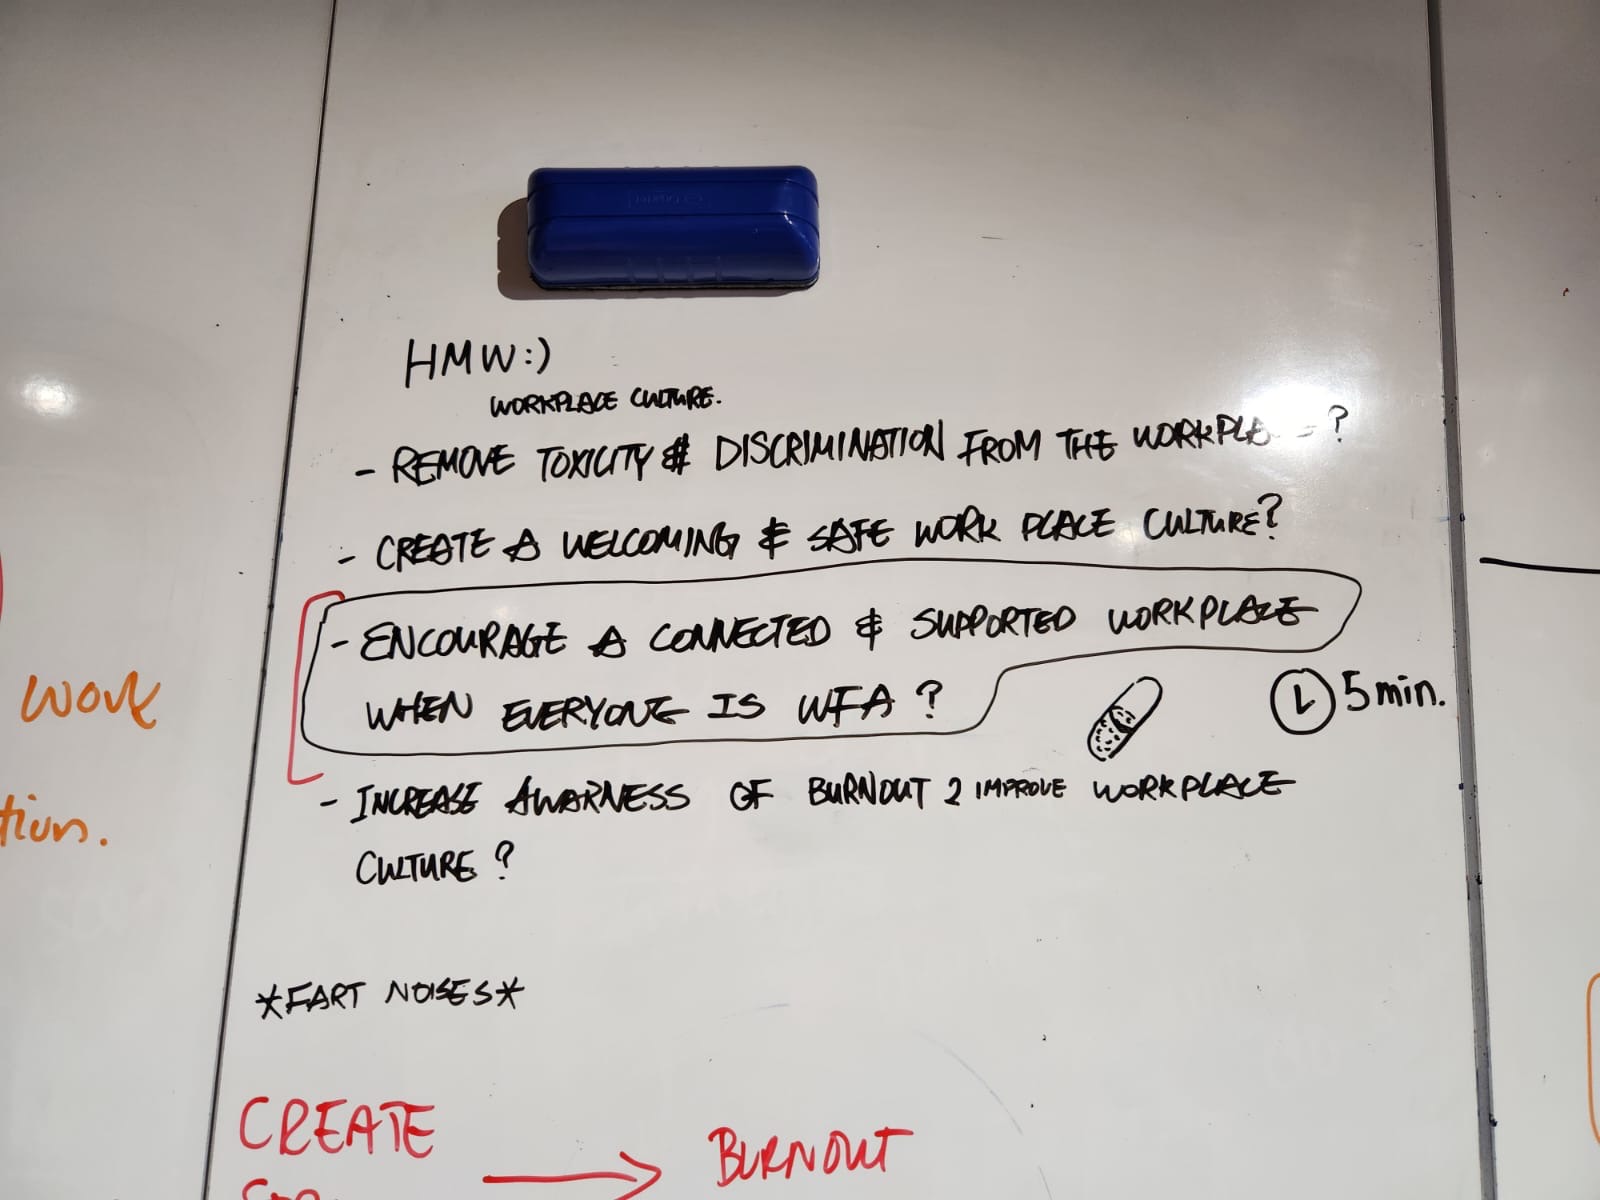 HMW:)
WORKPLACE CULTURE.
- REMOVE TOXICITY & DISCRIMINATION FROM THE WORKPLACE?
- CREATE A WELCOMING & SAFE WORK PLACE CULTURE?
- ENCOURAGE A CONNECTED & SUPPORTED WORKPLACE
WHEN EVERYONE IS WFA?
5 min.
- INCREASE AWARNESS OF BURNOUT 2 IMPROVE WORKPLACE
CULTURE?
*FART NOISES*
CREATE
BURNOUT
work
tion.